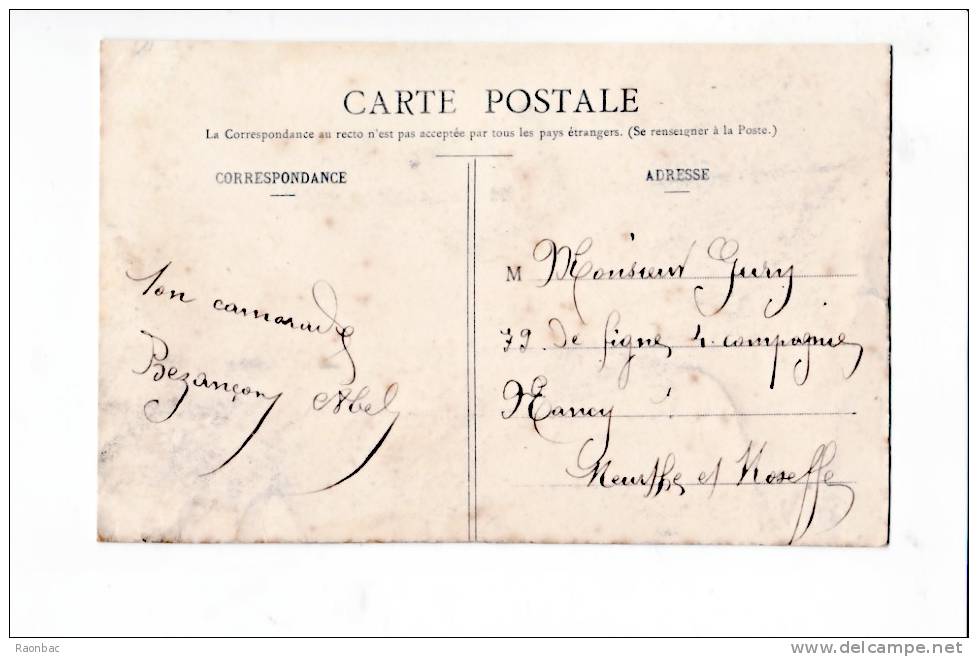 CARTE POSTALE
La Correspondance au recto n'est pas acceptée par tous les pays étrangers. (Se renseigner à la Poste.)
CORRESPONDANCE
Ton camarade
Bezançon Abel
ADRESSE
M Monsieur Gury
79 de ligne 4. compagnie
Nancy
Meurthe et Moselle
Raonbac
www.delcampe.net